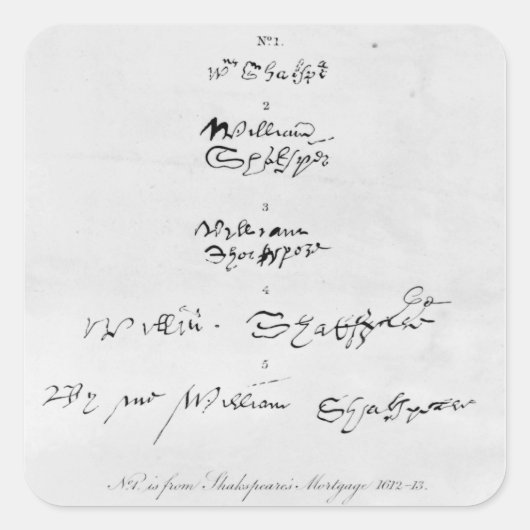 No. 1.
Wm Shakspē
2
William
Shakspēr
3
William
Shakspere
4
Willm. Shakspere
5
By me William Shakspeare
No. 1. is from Shakspeare's Mortgage 1612-13.